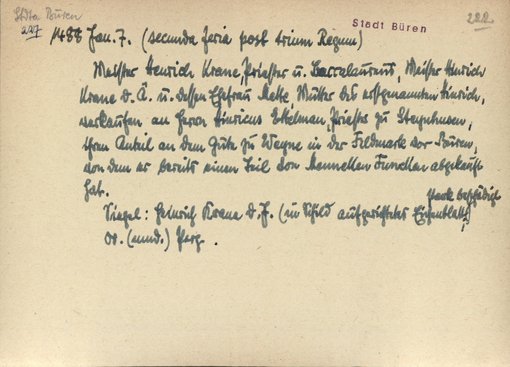 Stdta. Büren
227
Stadt Büren
222
1488 Jan. 7. (secunda feria post trium Regum)
Meister Henrich Krane, Priester u. Baccalaureus, Meister Hinrich
Krane d. Ä. u. dessen Ehefrau Mette, Mutter des erstgenannten Hinrich,
verkaufen an Herrn Hinricus Ekelman, Priester zu Steynhusen,
ihren Anteil an dem Gute zu Weyne in der Feldmark vor Büren,
von dem er bereits einen Teil von Menneken abgekauft
hat.
stark beschädigt
Siegel: Heinrich Krane d. J. (im Schild aufgerichtetes Eichenblatt)
Or. (mnd.) Perg.